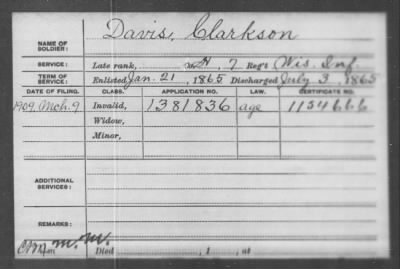 Davis, Clarkson
NAME OF SOLDIER:
SERVICE: Late rank, Co H, 7 Reg't Wis. Inf.
TERM OF SERVICE: Enlisted Jan. 21, 1865 Discharged July 3, 1865
DATE OF FILING. CLASS. APPLICATION NO. LAW. CERTIFICATE NO.
1909, Mch. 9 Invalid, 1381836 age 1154666
Widow,
Minor,
ADDITIONAL SERVICES:
REMARKS:
Died , 1 , at